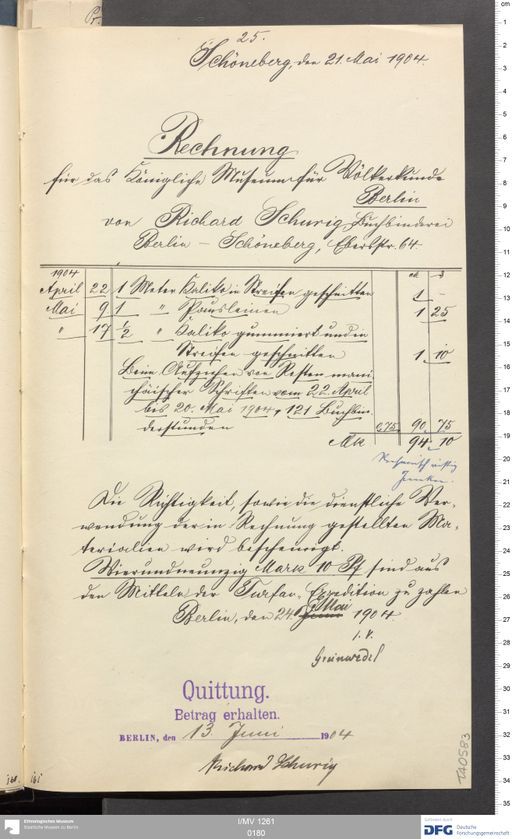 25.
Schöneberg, den 21. Mai 1904.
Rechnung
für das Königliche Museum für Völkerkunde
Berlin
von Richard Schurig, Buchbinderei
Berlin – Schöneberg, Eberstr. 64.
1904 M ₰
April 22 1 Meter Kaliko in Streifen geschnitten 1 –
Mai 9 1 " Pausleinen 1 25
" 17 1/2 " Kaliko gummiert und in
Streifen geschnitten 1 10
Beim Aufziehen von Resten mani-
chäischer Schriften vom 22. April
bis 20. Mai 1904, 121 Buchbin-
derstunden 0,75 90 75
Mk 94 10
Rechnerisch richtig
Die Richtigkeit, sowie die dienstliche Ver-
wendung der in Rechnung gestellten Ma-
terialien wird bescheinigt.
Vierundneunzig Mark 10 Pf sind aus
den Mitteln der Turfan-Expedition zu zahlen
Berlin, den 24. Juni Mai 1904.
I. V.
Grünwedel
Quittung.
Betrag erhalten.
BERLIN, den 13. Juni 1904
Richard Schurig
TA0583
Ethnologisches Museum
Staatliche Museen zu Berlin
I/MV 1261
0180
DFG Deutsche
Forschungsgemeinschaft